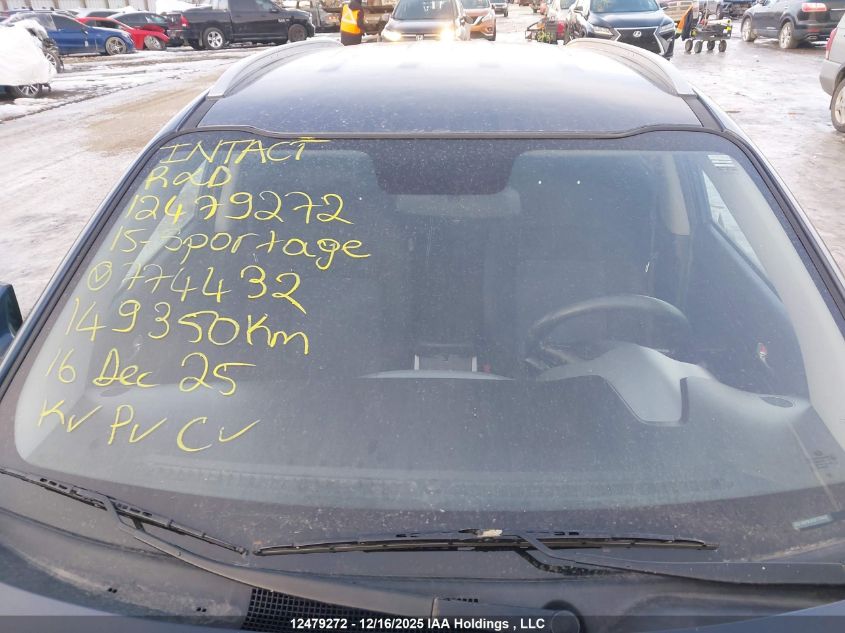 INTACT
R&D
12479272
15-Sportage
V 774432
149350Km
16 Dec 25
K✓ P✓ C✓
12479272 - 12/16/2025 IAA Holdings , LLC